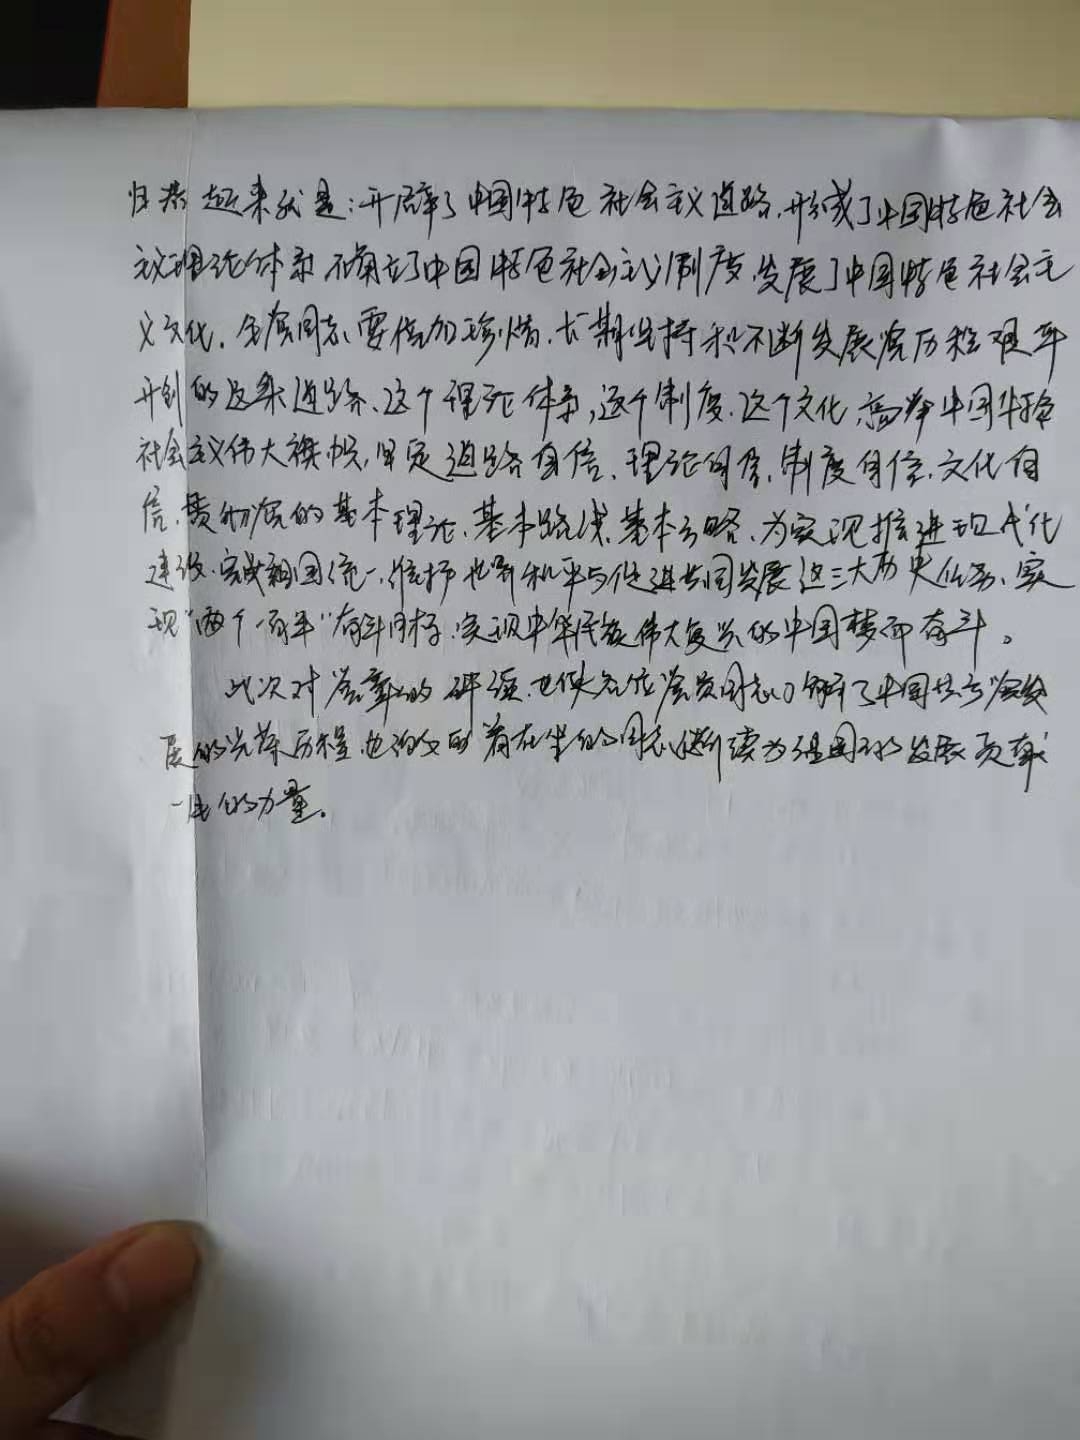 归结起来就是：开辟了中国特色社会主义道路，形成了中国特色社会
主义理论体系，确立了中国特色社会主义制度，发展了中国特色社会主
义文化。全党同志要倍加珍惜、长期坚持和不断发展党历经艰辛
开创的这条道路、这个理论体系、这个制度、这个文化，高举中国特色
社会主义伟大旗帜，坚定道路自信、理论自信、制度自信、文化自
信，贯彻党的基本理论、基本路线、基本方略，为实现推进现代化
建设、完成祖国统一、维护世界和平与促进共同发展这三大历史任务，实
现“两个一百年”奋斗目标、实现中华民族伟大复兴的中国梦而奋斗。
此次对党章的研读，也使各位党员同志们了解了中国共产党发
展的光荣历程，也着在坐的同志继续为祖国的发展贡献
的力量。